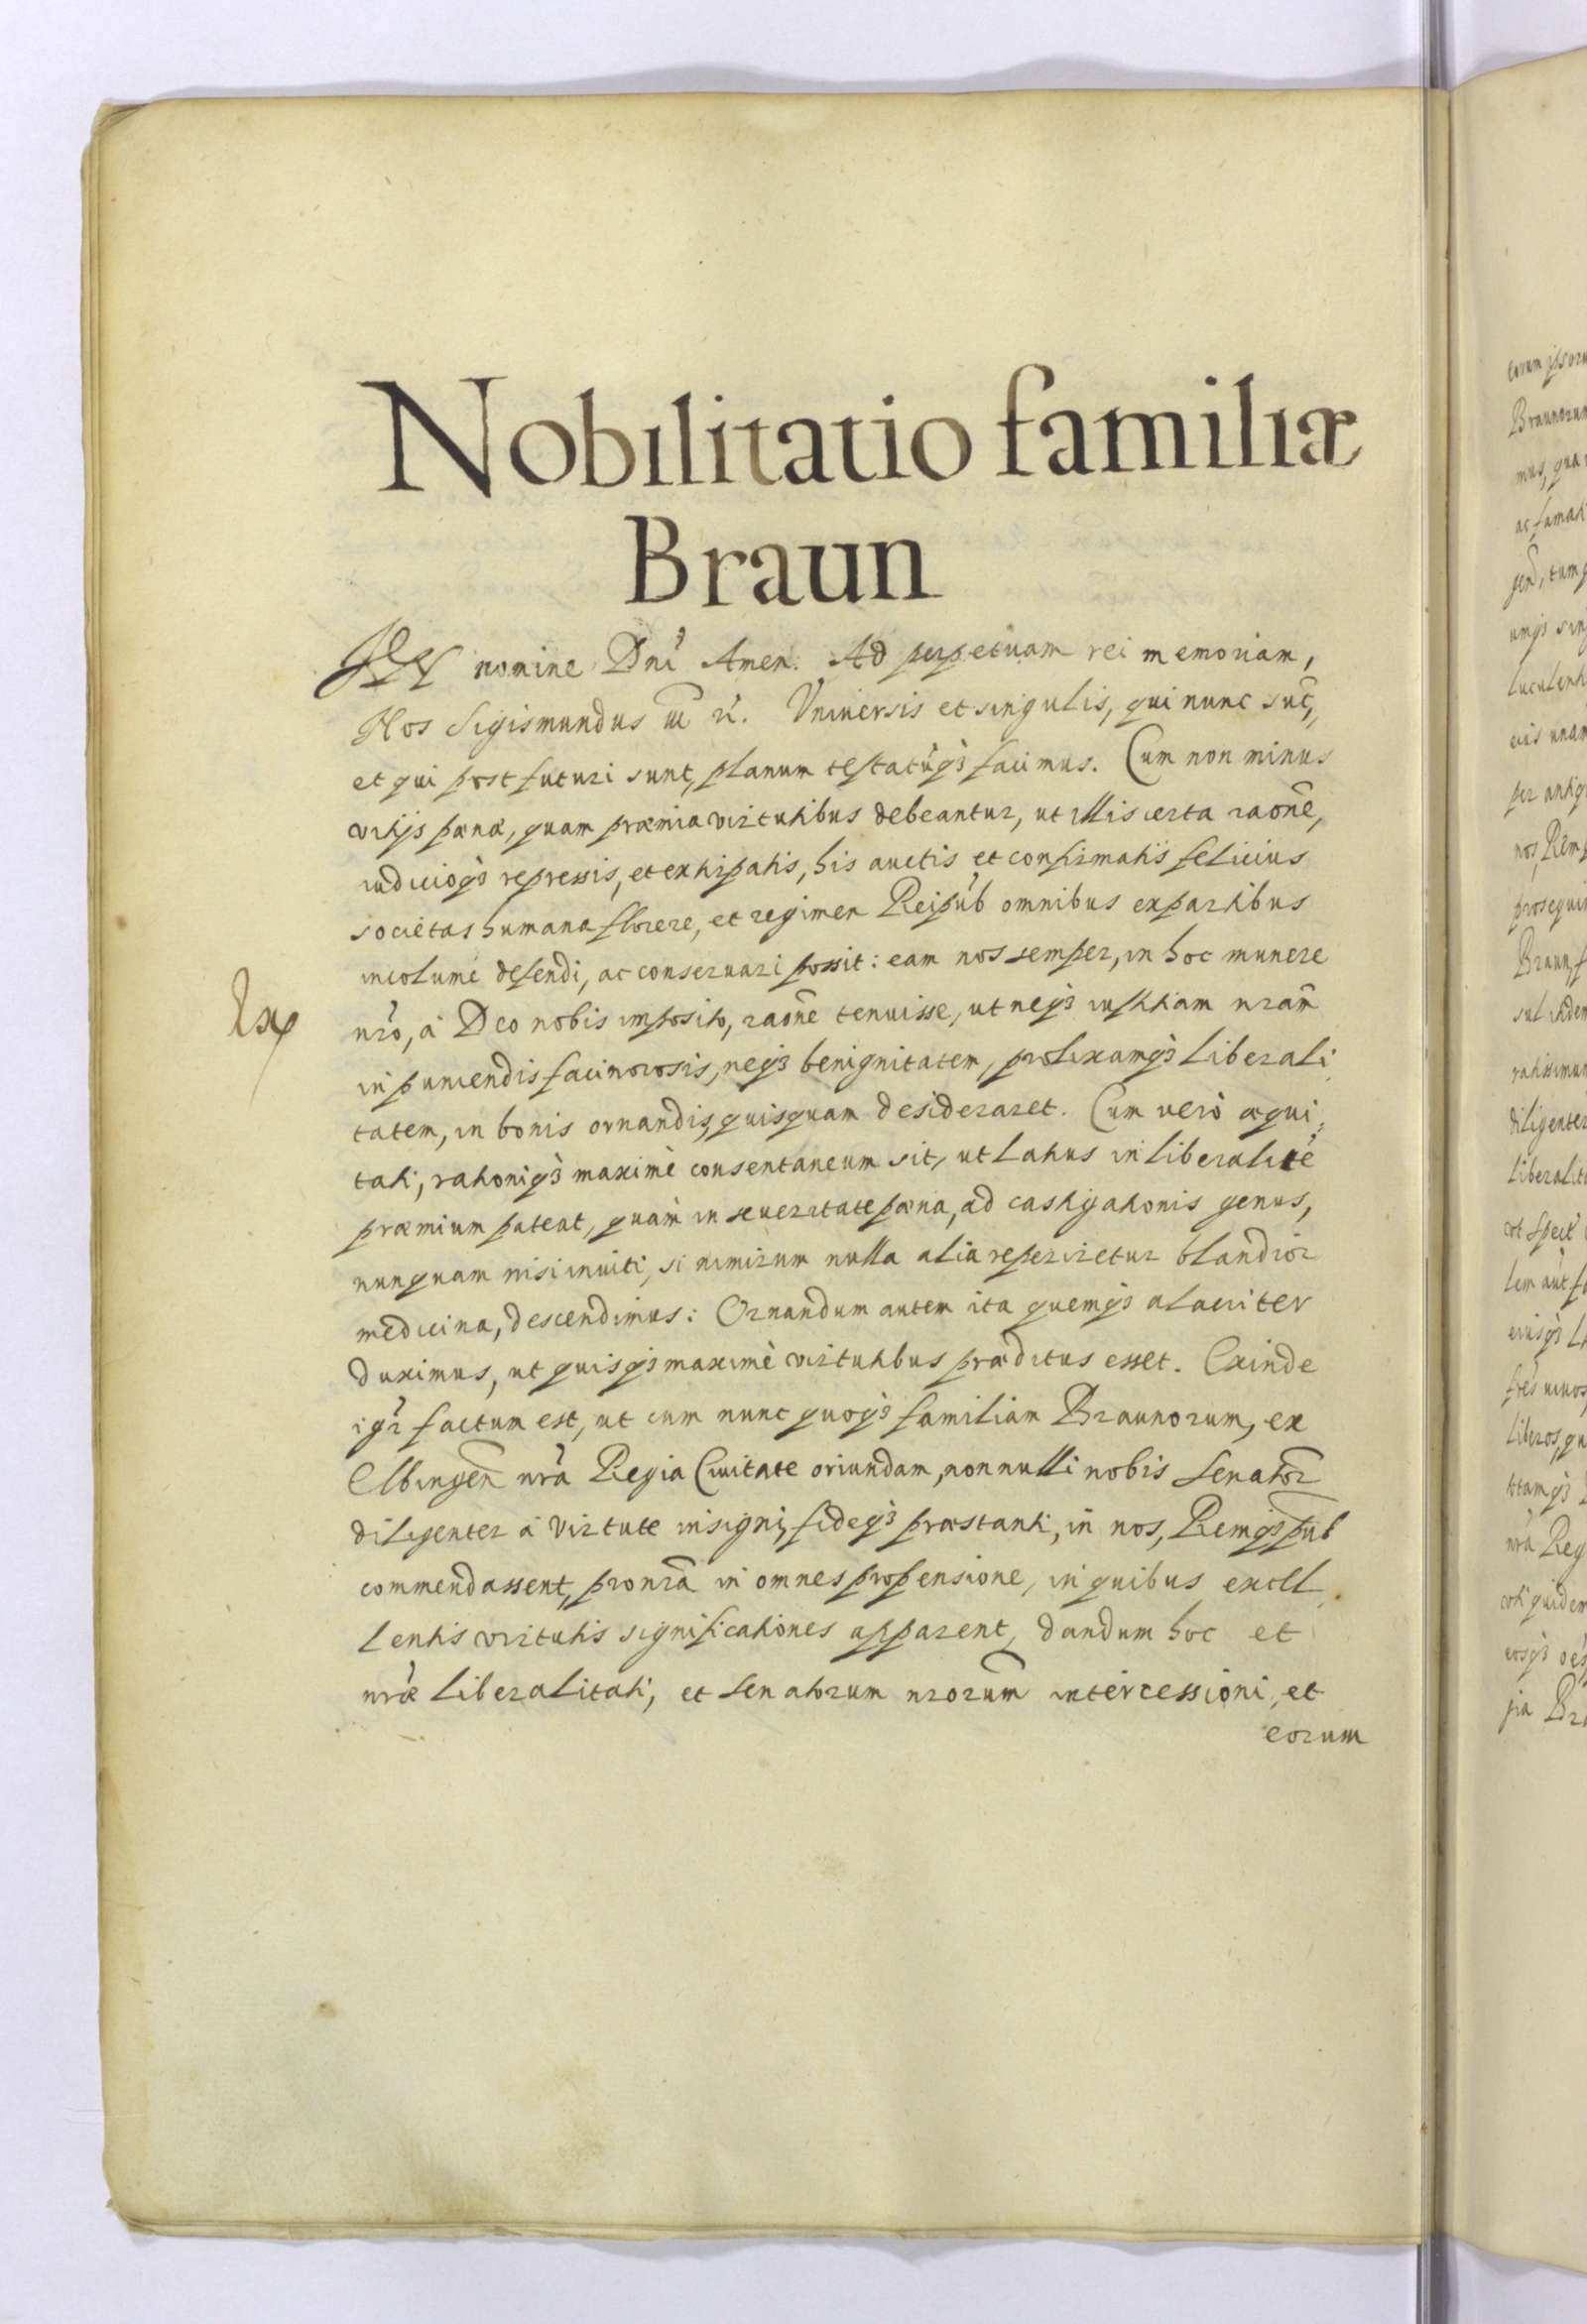 Nobilitatio familiæ
Braun
IN nomine Dnī Amen. Ad perpetuam rei memoriam,
Nos Sigismundus
Vniuersis et singulis, qui nunc sūt,
et qui post futuri sunt, planum testatūq3 facimus. Cum non minus
vitijs pœnæ, quam præmia virtutibus debeantur, ut illis certa raōne,
iudicioq3 repressis, et extirpatis, his auctis et confirmatis felicius
societas humana florere, et regimen Reipub omnibus ex partibus
incolume defendi, ac conseruari possit: eam nos semper, in hoc munere
Exp
nrō, à Deo nobis imposito, raōne tenuisse, ut neq3 iustitiam nram̄
in puniendis facinorosis, neq3 benignitatem, prolixamq3 liberali
tatem, in bonis ornandis, quisquam desideraret. Cum verò æqui,
tati, rationiq3 maximè consentaneum sit, ut latius in liberalitē
præmium pateat, quàm in seueritate pœna, ad castigationis genus,
nunquam nisi inuiti, si nimirum nulla alia reperiretur blandior
medicina, descendimus: Ornandum autem ita quemq3 alacriter
duximus, ut quisq3 maximè virtutibus præditus esset. Exinde
igr factum est, ut cum nunc quoq3 familiam Braunorum, ex
Elbingen̄ nrā Regia Ciuitate oriundam, nonnulli nobis Senator̄
diligenter à virtute insigni, fideq3 præstanti, in nos, Remq3 pub
commendassent, pro nrā in omnes propensione, in quibus excel
lentis virtutis significationes apparent, dandum hoc et
nrǣ liberalitati, et Senatorum nrorum̄ intercessioni, et
eorum